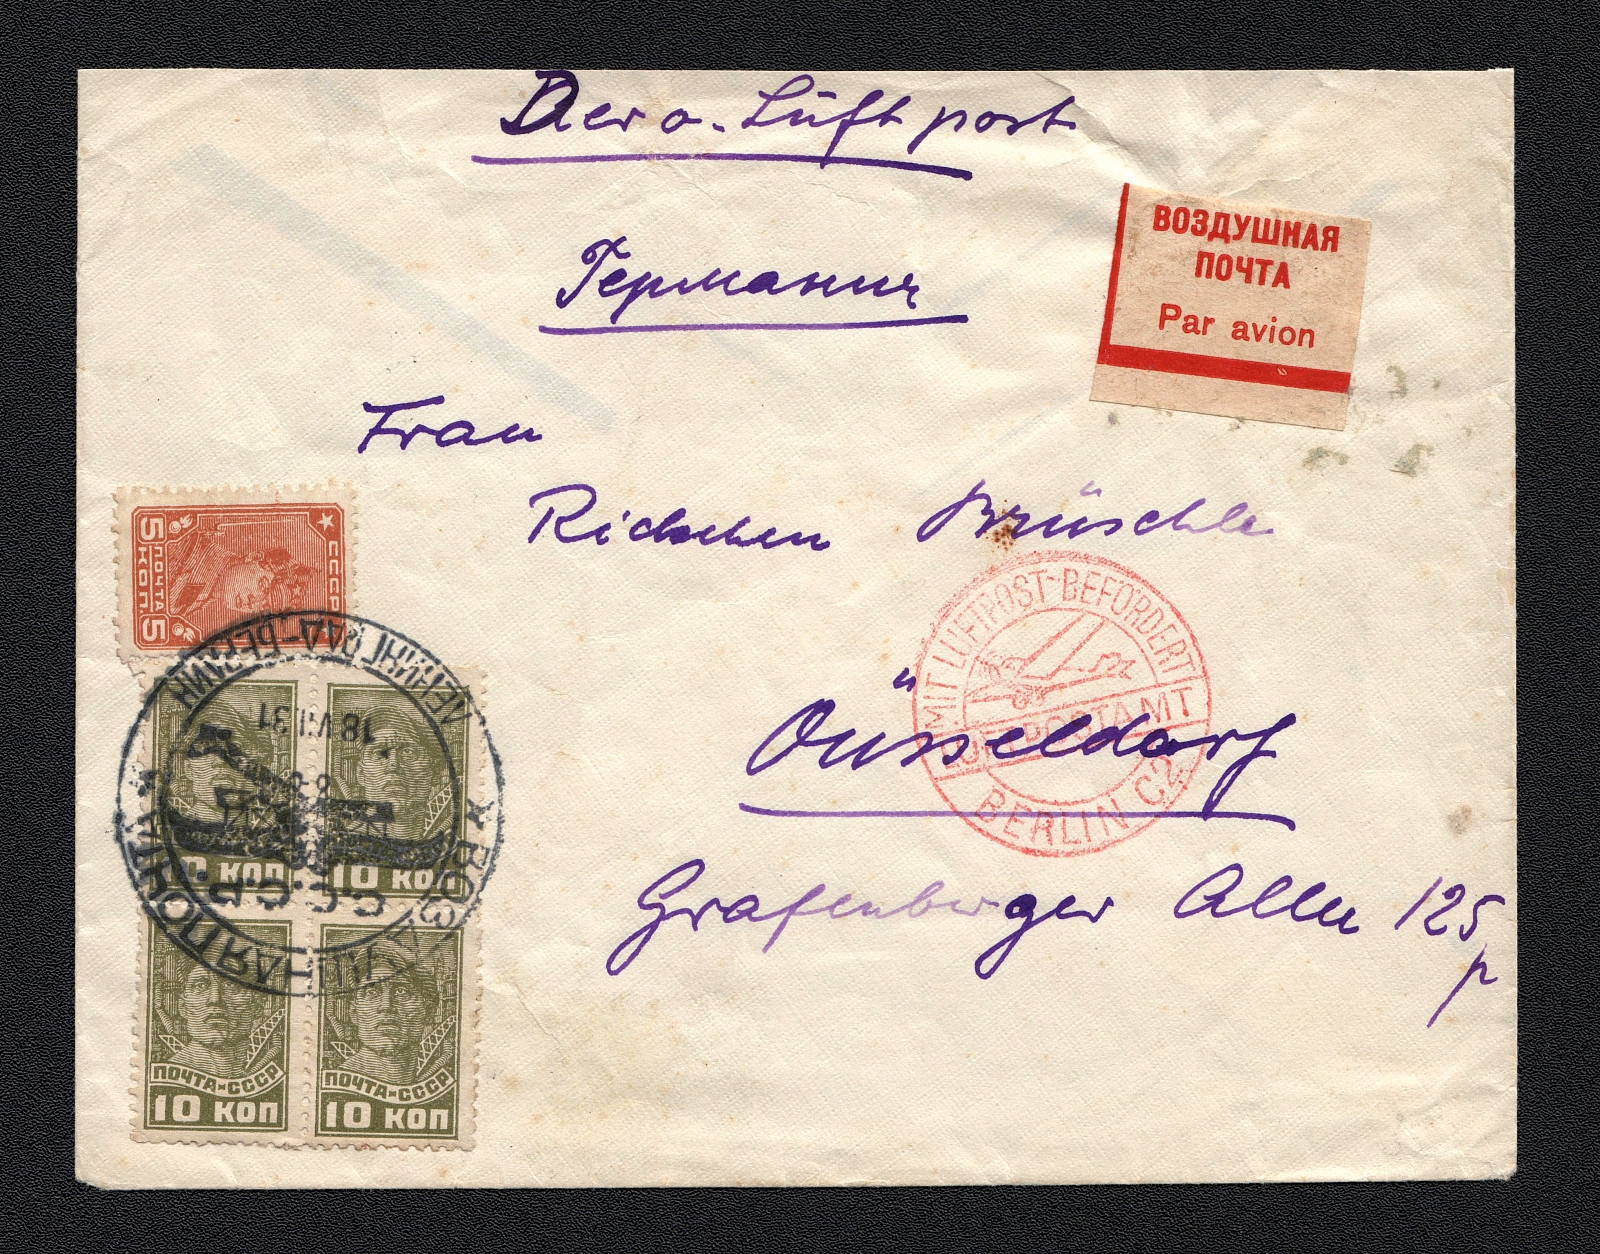 Aero. Luftpost
Германия
ВОЗДУШНАЯ
ПОЧТА
Par avion
Frau
Brüschle
Düsseldorf
Grafenberger Allee 125
MIT LUFTPOST BEFÖRDERT
LUFTPOSTAMT
BERLIN C2
СССР
ПОЧТА
5 КОП. 5
ЛЕНИНГРАД-БЕРЛИН
18 VII.31
С.С.С.Р.
ВОЗДУШНАЯ ПОЧТА
10 КОП
10 КОП
ПОЧТА СССР
10 КОП
ПОЧТА СССР
10 КОП